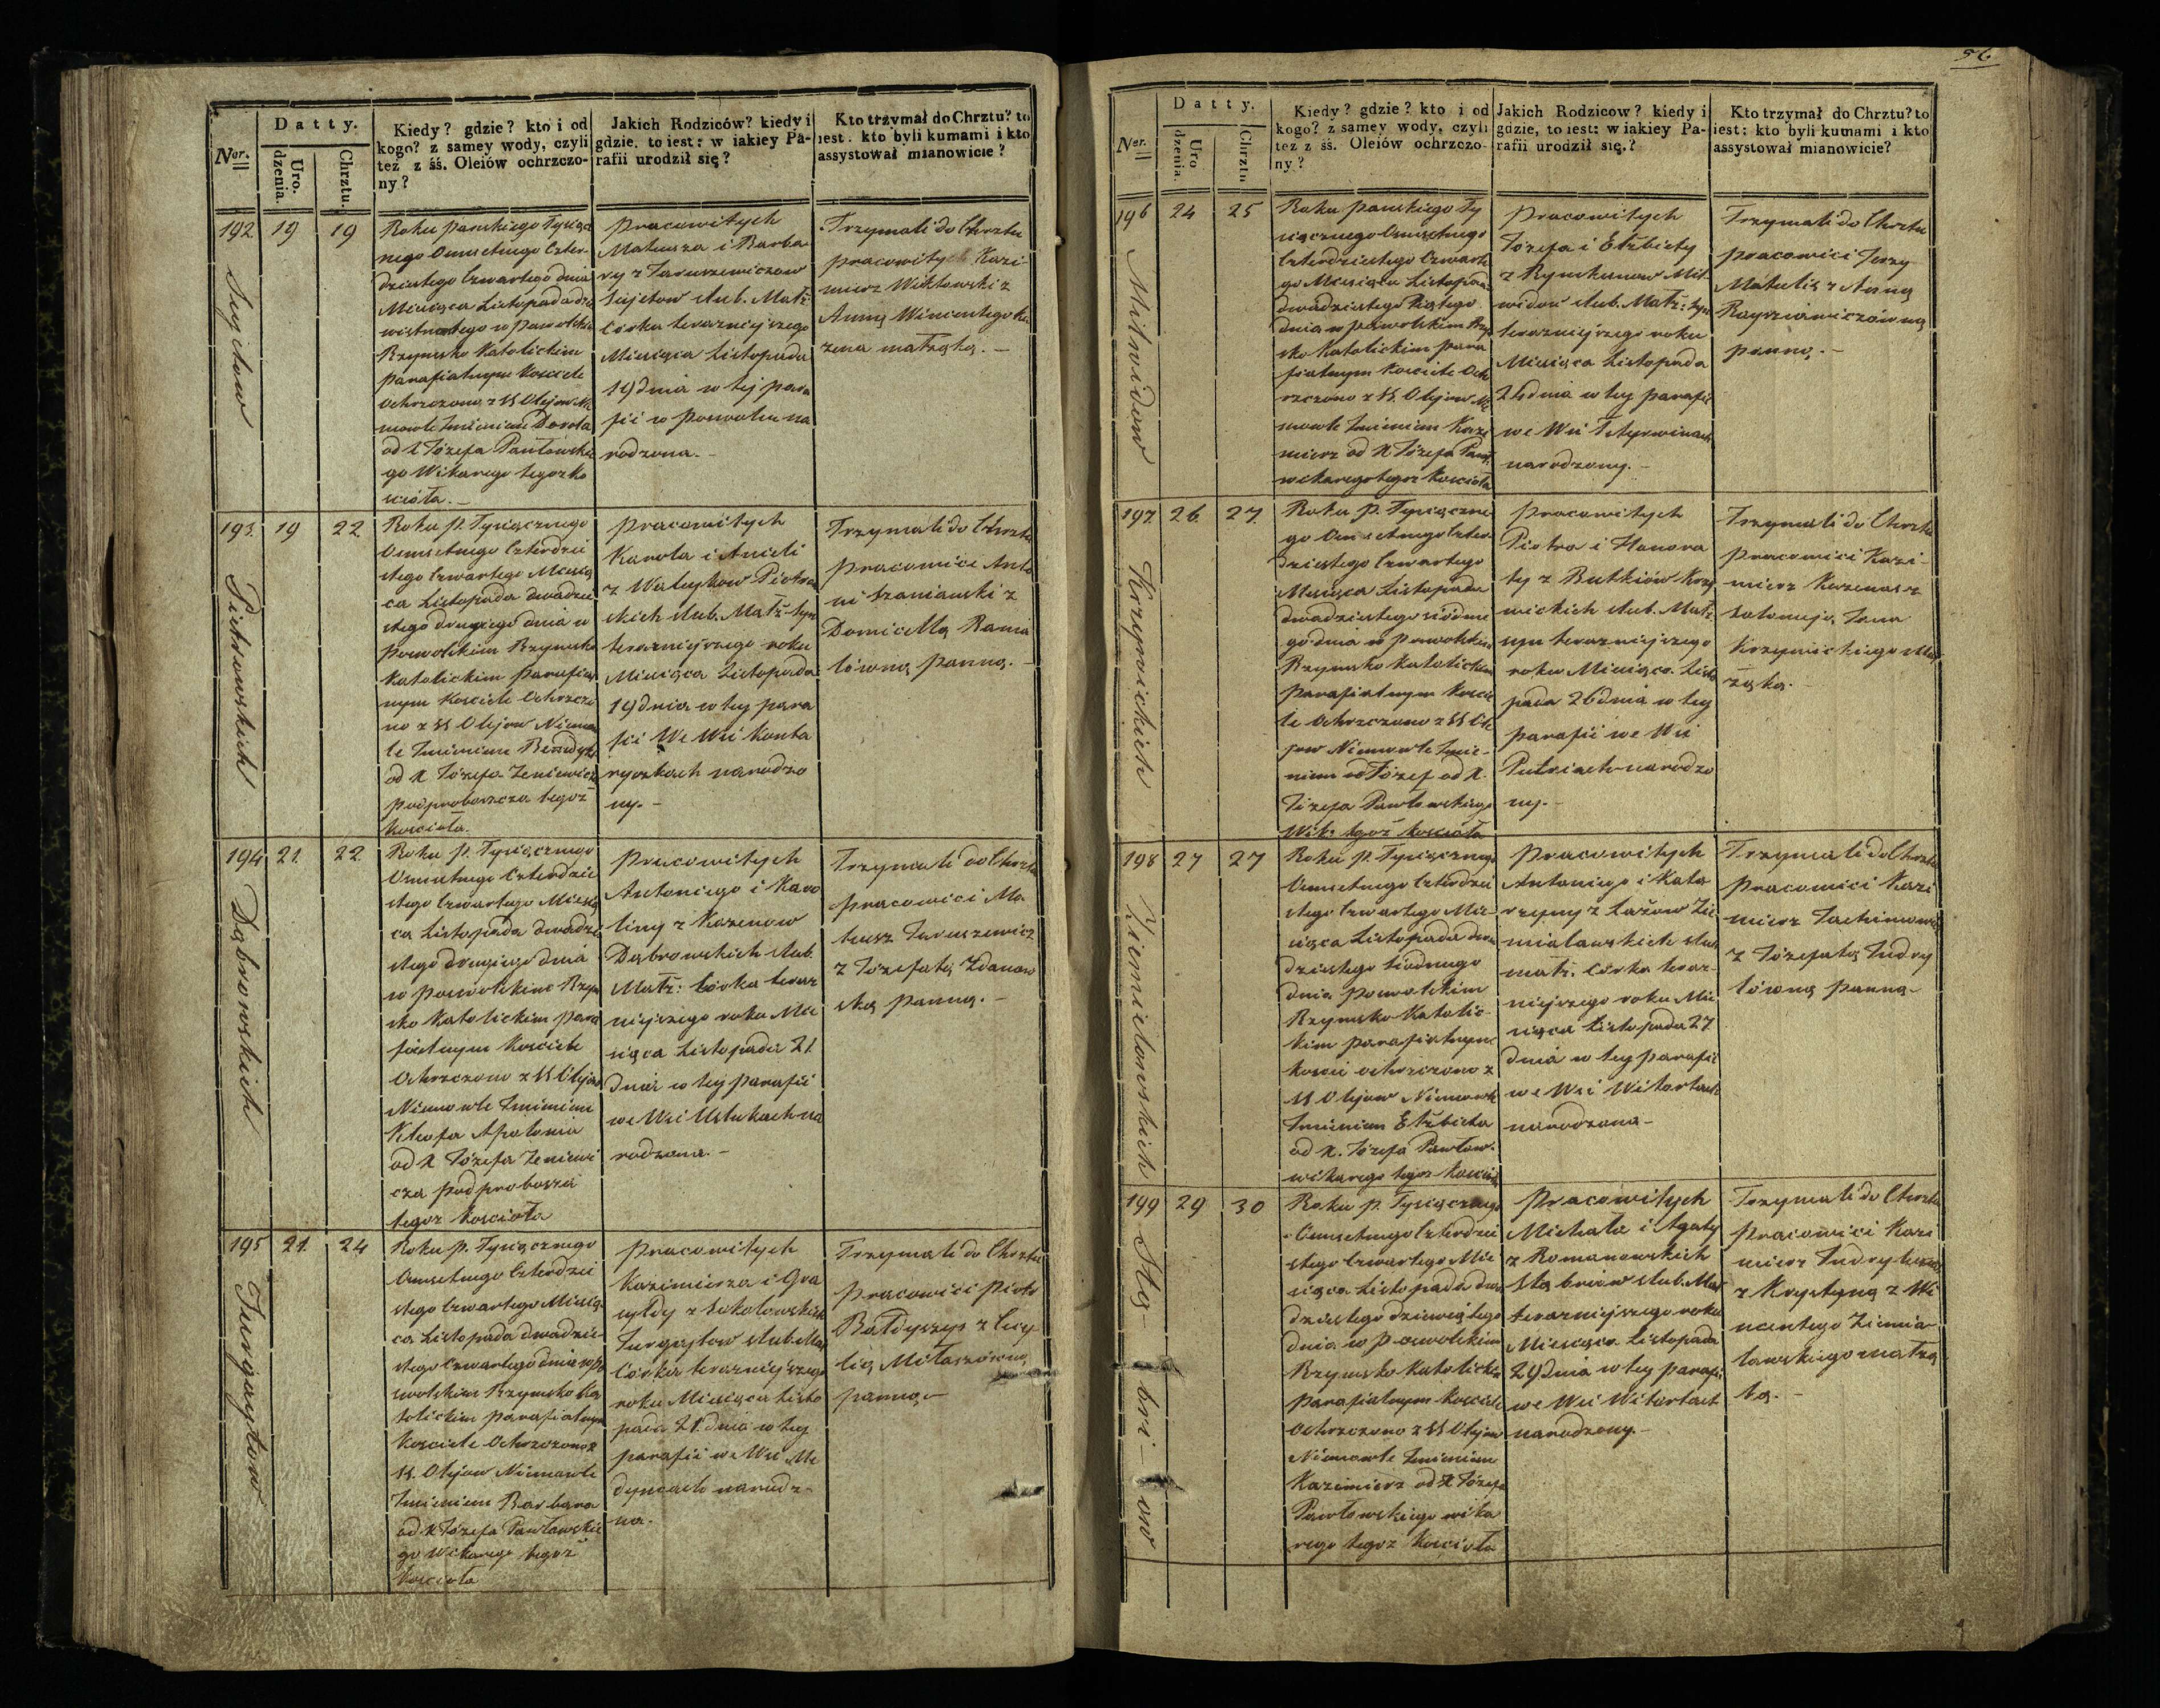 56
Nor.
Datty.
Uro.
dzenia.
Chrztu.
Kiedy? gdzie? kto i od
kogo? z samey wody, czyli
też z śś. Oleiów ochrzczo-
ny?
Jakich Rodziców? kiedy i
gdzie, to iest: w iakiey Pa-
rafii urodził się?
Kto trzymał do Chrztu? to
iest: kto byli kumami i kto
assystował mianowicie?
192
19
19
Roku pańskiego Tysiącz
nego Osmsetnego Czter-
dziestego Czwartego dnia
Miesiąca Listopada dzie
więtnastego w
Rzymsko Katolickim
parafialnym Kosciele
Ochrzczono z SS Olejow Nie
mowle Imieniem Dorota
od X Józefa Pawłowskie
go Wikarego tegoz ko
scioła. –
Pracowitych
Mateusza i Barba
ry z Jaruszewiczow
slub. Małż:
Córka terazniejszego
Miesiąca Listopada
19 dnia w tej para
fii w Poswolu na
rodzona. –
Trzymali do Chrztu
pracowitych Kazi
mierz Witkowski z
Anną Wincentego
żena małżąką. –
193.
19
22
Pietrowskich
Roku p. Tysiącznego
Osmsetnego Czterdzie
stego Czwartego Miesią
ca Listopada dwadzie
stego drugiego dnia w
poswolskim Rzymsko
Katolickim Parafial
nym Kosciele Ochrzczo
no z SS Olejow Niemow
le Imieniem
od X Józefa Zeniewicza
podproboszcza tegoż
Kościoła.
Pracowitych
Karola i Anieli
z Pietrow
skich slub. Małż: syn
terazniejszego roku
Miesiąca Listopada
19 dnia w tey para
fii We Wsi Konta
ryszkach narodzo
ny. –
Trzymali do Chrztu
pracowici Anto
ni Szaniawski z
Domicellą Rama
lówną panną. –
194
21.
22
Dąbrowskich
Roku p. Tysiącznego
Osmsetnego Czterdzie
stego Czwartego Miesią
ca Listopada dwadzie
stego drugiego dnia
w poswolskim Rzym
sko Katolickim para
fialnym Kosciele
Ochrzczono z SS Olejow
Niemowle Imieniem
Kleofa Apolonia
od X Józefa Zeniewi
cza podproboszcza
tegoz Kosciola
Pracowitych
Antoniego i Karo
liny z Kazenow
Dąbrowskich slub.
Małż: Córka teraz
niejszego roku Mie
siąca Listopada 21
dnia w tej parafii
we Wsi Ustukach na
rodzona. –
Trzymali do Chrztu
pracowici Ma
teusz Jaruszewicz
z Józefatą Zdanow
ską panną. –
195
21.
24
Jurgaytow
Roku p. Tysiącznego
Osmsetnego Czterdzie
stego Czwartego Miesią
ca Listopada dwadzie-
stego Czwartego dnia w po
swolskim Rzymsko Ka
tolickim parafialnym
Kosciele Ochrzczono z
SS. Olejow Niemowle
Imieniem Barbara
od X Józefa Pawłowskie
go Wikarego tegoż
Kościoła
Pracowitych
Kazimierza i Gra
cyldy z Sokołowskich
Jurgaytow slub. Małż
Córka terazniejszego
roku Miesiąca Listo
pada 21 dnia w tey
parafii we Wsi Me
dyncach narodzo-
na.
Trzymali do Chrztu
pracowici Piotr
z Cecy
lią Mitaszówną
panną –
Nor.
Datty.
Uro
dzenia.
Chrztu
Kiedy? gdzie? kto i od
kogo? z samey wody, czyli
też z śś. Oleiów ochrzczo-
ny?
Jakich Rodziców? kiedy i
gdzie, to iest: w iakiey Pa-
rafii urodził się.?
Kto trzymał do Chrztu? to
iest: kto byli kumami i kto
assystował mianowicie?
196
24
25
Mitwidow
Roku pańskiego Ty
siącznego Osmsetnego
Czterdziestego Czwarte
go Miesiąca Listopada
dwadziestego Piątego
dnia w poswolskim Rzym
sko Katolickim para
fialnym Kosciele Och
rzczono z SS. Olejow Nie
mowle Imieniem Kazi
mierz od X Józefa Pawł.
wikarego tegoz Kosciola
Pracowitych
Józefa i Elżbiety
z Rymkunow Mit
widow slub. Małż: syn
terazniejszego roku
Miesiąca Listopada
24 dnia w tey parafii
we Wsi
narodzony. –
Trzymali do Chrztu
pracowici Jerzy
Matulis z Anną
panną. –
197
26.
27.
Krzywickich
Roku p. Tysiączne
go Osmsetnego Czter-
dziestego Czwartego
Miesiąca Listopada
dwadziestego siódme
go dnia w poswolskim
Rzymsko Katolickim
parafialnym Koscie
le Ochrzczono z SS Ole
jow Niemowle Imie-
niem Józef od X.
Józefa Pawłowskiego
Wik: tegoż kościoła
Pracowitych
Piotra i Honora
ty z Butkiów Krzy
wickich slub. Małż:
syn terazniejszego
roku Miesiąca Listo
pada 26 dnia w tey
parafii we Wsi
Putriach narodzo
ny. –
Trzymali do Chrztu
pracowici Kazi-
mierz Kazenas z
Salomeją Jana
Krzywickiego mał
żąką. –
198
27
27
Ziemielowskich
Roku p. Tysiącznego
Osmsetnego Czterdzie
stego Czwartego Mie-
siąca Listopada dwa
dziestego siodmego
dnia poswolskim
Rzymsko Katolic-
kim parafialnym
koscie ochrzczono z
SS Olejow Niemowle
Imieniem Elżbieta
od X. Józefa Pawłow.
wikarego tegoz kosciola
Pracowitych
Antoniego i Kata
rzyny z Łażow Zie
mialawskich slub
małż. Córka teraz-
niejszego roku Mie
siąca Listopada 27
dnia w tey parafii
we Wsi Witartach
narodzona –
Trzymali do Chrztu
pracowici Kazi
mierz
z Józefatą Indry
lówną panną –
199
29
30
Stą-bri-ow
Roku p. Tysiącznego
Osmsetnego Czterdzie
stego Czwartego Mie
siąca Listopada dwa
dziestego dziewiątego
dnia w poswolskim
Rzymsko Katolickim
parafialnym kosciele
Ochrzczono z SS Olejow
Niemowle Imieniem
Kazimierz od X Józefa
Pawłowskiego wika
rego tegoz Kosciola
Pracowitych
Michała i Agaty
z Romanowskich
Stąbriow slub. Małż
terazniejszego roku
Miesiąca Listopada
29 dnia w tey parafii
we Wsi Witartach
narodzony. –
Trzymali do Chrztu
pracowici Kazi
mierz
z Krystyną z Wi
ncentego Ziemia-
lawskiego małżą
ką. –